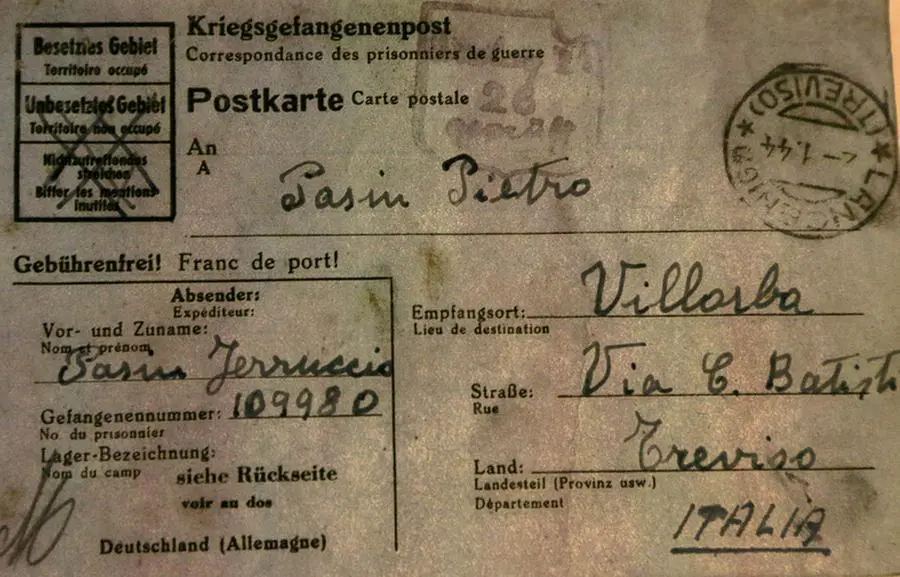 Besetztes Gebiet
Territoire occupé
Unbesetztes Gebiet
Territoire non occupé
Nichtzutreffendes
streichen
Biffer les mentions
inutiles
Kriegsgefangenenpost
Correspondance des prisonniers de guerre
Postkarte Carte postale
26
An
A
Pasin Pietro
(TREVISO)
-1.44
Gebührenfrei! Franc de port!
Absender:
Expéditeur:
Vor- und Zuname:
Nom et prénom
Pasin Ferruccio
Gefangenennummer: 109980
No. du prisonnier
Lager-Bezeichnung:
Nom du camp
siehe Rückseite
voir au dos
Deutschland (Allemagne)
Empfangsort: Villorba
Lieu de destination
Straße: Via C. Batisti
Rue
Land: Treviso
Landesteil (Provinz usw.)
Département
ITALIA